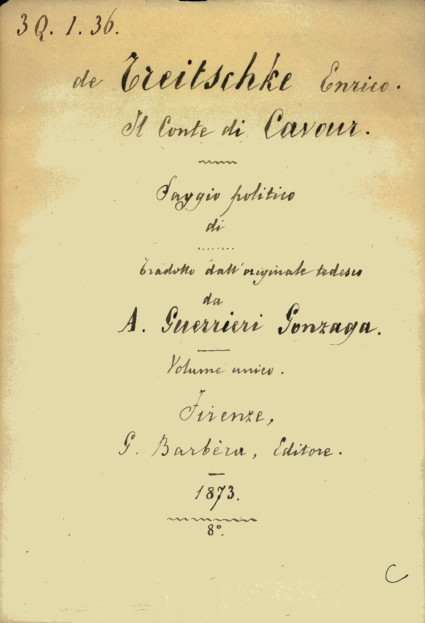 3Q. 1. 36.
de Treitschke Enrico.
Il Conte di Cavour.
Saggio politico
di
.......
Tradotto dall'originale tedesco
da
A. Guerrieri Gonzaga.
Volume unico.
Firenze,
G. Barbèra, Editore.
1873.
8°.
C